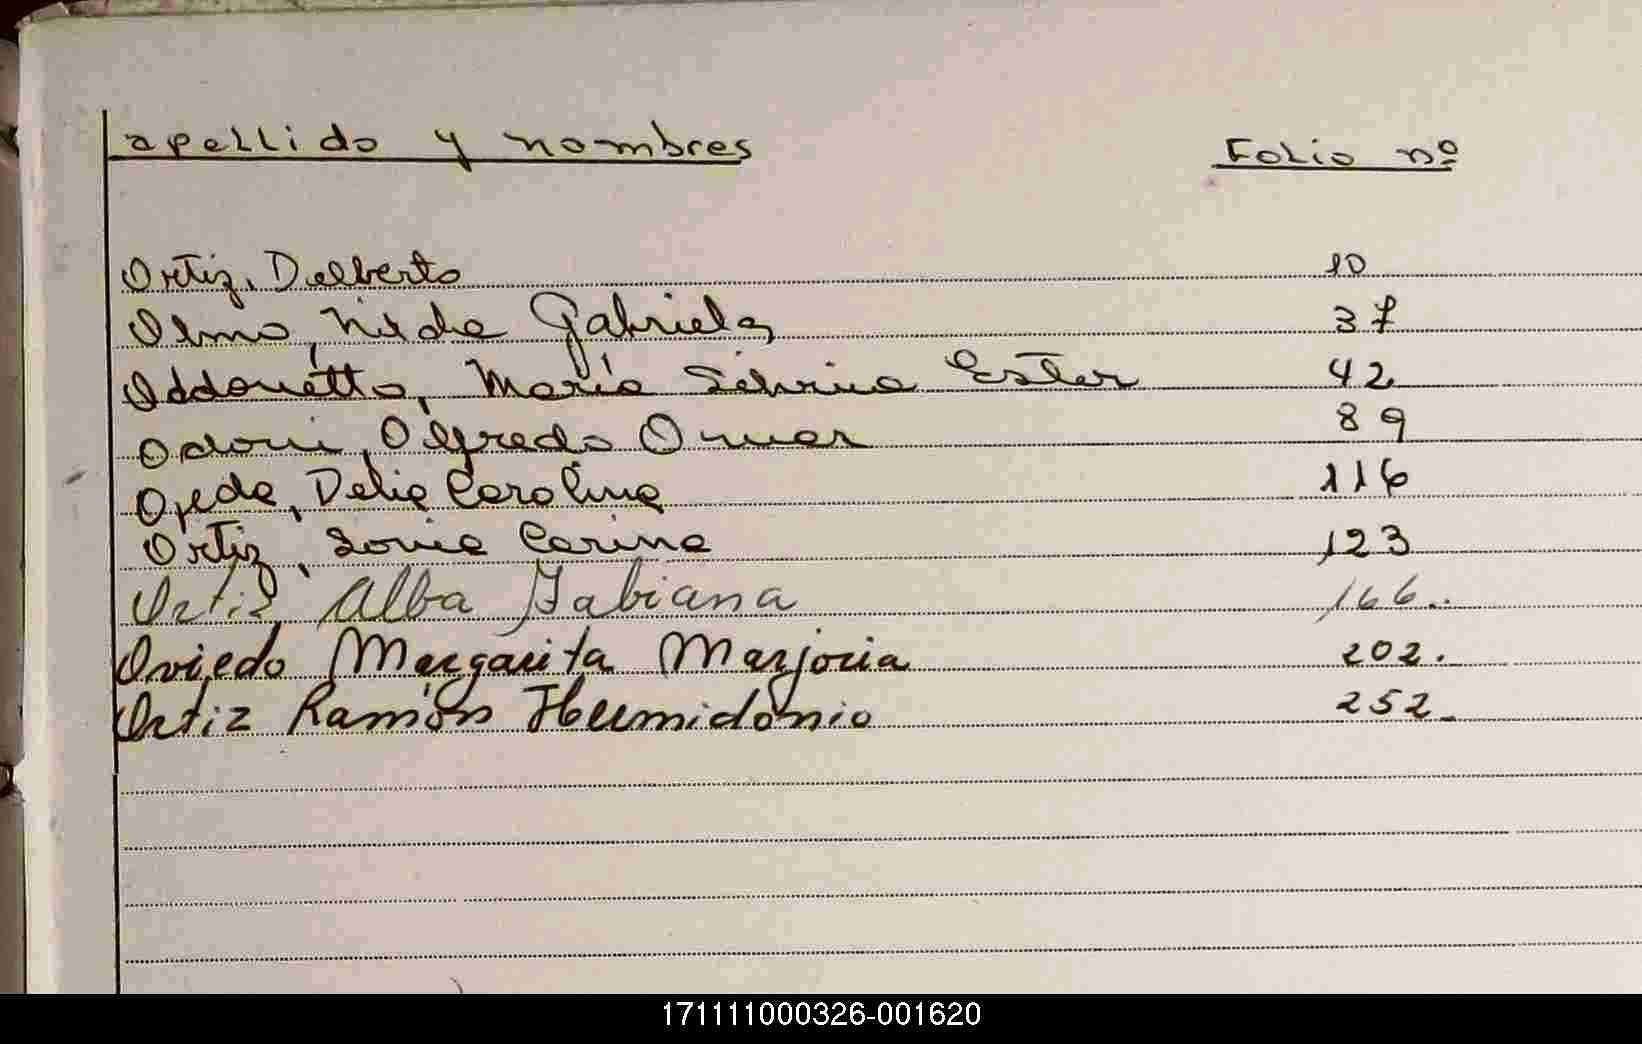 apellido y nombres Folio nº
Ortiz, Dalberto 10
Olmo, Nidia Gabriela 37
Oddonetto, María Silvina Ester 42
Odorni, Alfredo Omar 89
Ojeda, Delia Carolina 116
Ortiz, Sonia Carina 123
Ortiz, Alba Fabiana 166..
Oviedo Margarita Marjoria 202.
Ortiz Ramón Hermidonio 252.
171111000326-001620